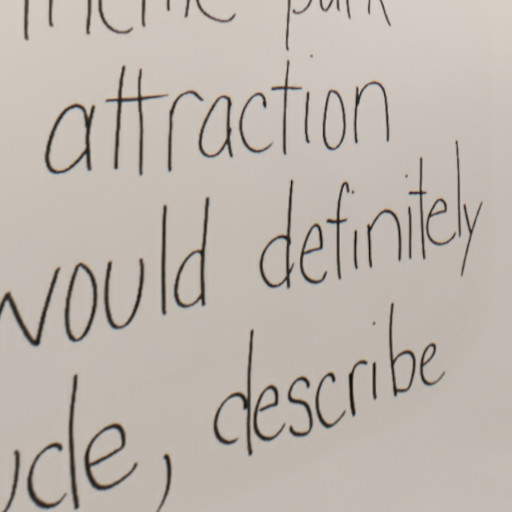 park
attraction
would definitely
describe